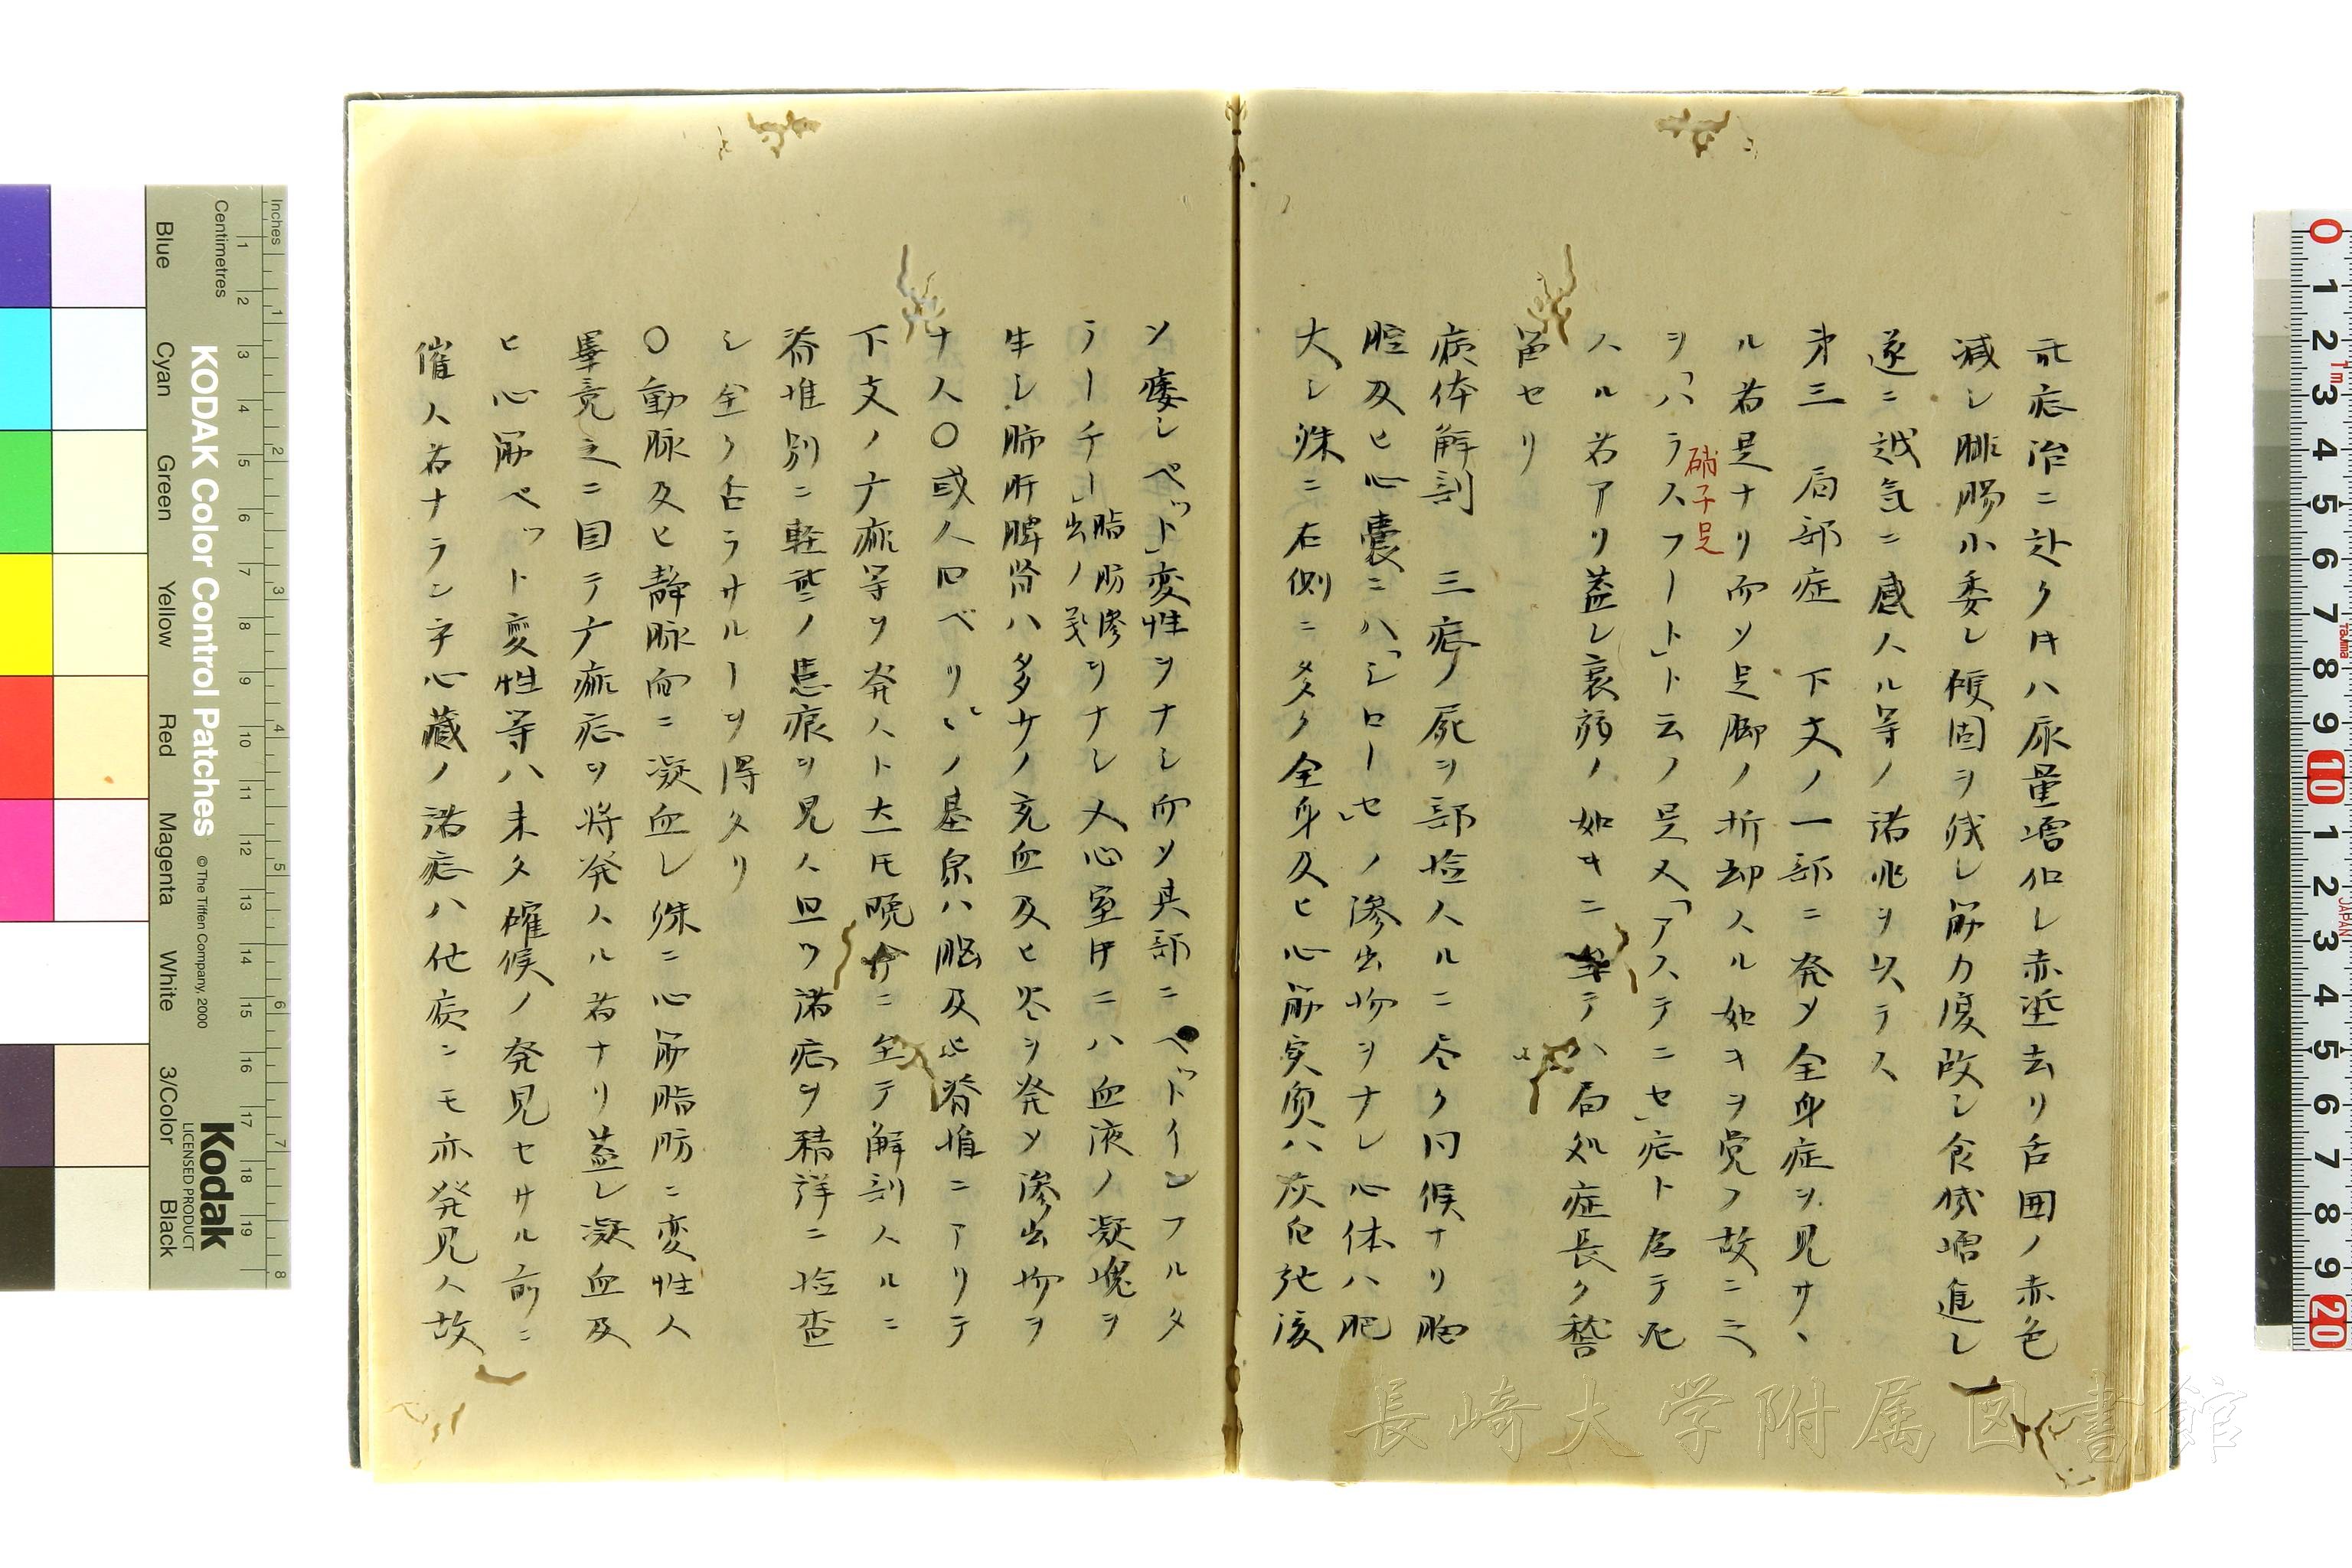 此症治ニ赴ク片ハ尿量増加シ赤垽去リ舌囲ノ赤色
減シ腓腸小委シ硬固ヲ残シ筋力度改シ食機増進シ
遂ニ越気ニ感スル等ノ諸兆ヲ以テス
第三 局部症 下文ノ一部ニ発〆全身症ヲ見サヽ
ル者是ナリ而〆足脚ノ折却スル如キヲ覚フ故ニ之
硝子足
ヲ「ハラスフート」ト云フ是又「アステニセ」症ト為テ死
スル者アリ蓋シ衰弱ノ如キニ至テハ局処症長ク稽
留セリ
病体解剖 三症ノ屍ヲ部検スルニ尽ク同候ナリ胸
腔及ヒ心嚢ニハ「シローセ」ノ滲出物ヲナシ心体ハ肥
大シ殊ニ右側ニ多ク全身及ヒ心筋実質ハ灰白死後
ソ痿シペット」変性ヲナシ而〆其部ニペットインフルタ
ラーチー」脂肪滲出ノ義ヲナシ又心室中ニハ血液ノ凝塊ヲ
生シ肺肝脾腎ハ多少ノ充血及ヒ炎ヲ発〆滲出物ヲ
ナス〇或人曰ベリヽノ基原ハ脳及ヒ脊椎ニアリテ
下文ノナ痲等ヲ発スト大氐晩今ニ至テ解剖スルニ
脊椎別ニ軽 ノ患痕ヲ見ス且ツ諸症ヲ精詳ニ検査
シ全ク否ラサルーヲ得タリ
〇動脉及ヒ静脉而ニ凝血シ殊ニ心筋脂肪ニ変性ス
畢竟之ニ因テナ痲症ヲ将発スル者ナリ蓋シ凝血及
ヒ心筋ペット変性等ハ未タ確候ノ発見セサル前ニ
催ス者ナラン乎心蔵ノ諸症ハ他病ニモ亦発見ス故
Inches
Centimetres
KODAK Color Control Patches
© The Tiffen Company, 2000
Kodak
LICENSED PRODUCT
Blue
Cyan
Green
Yellow
Red
Magenta
White
3/Color
Black
長崎大学附属図書館
JAPAN